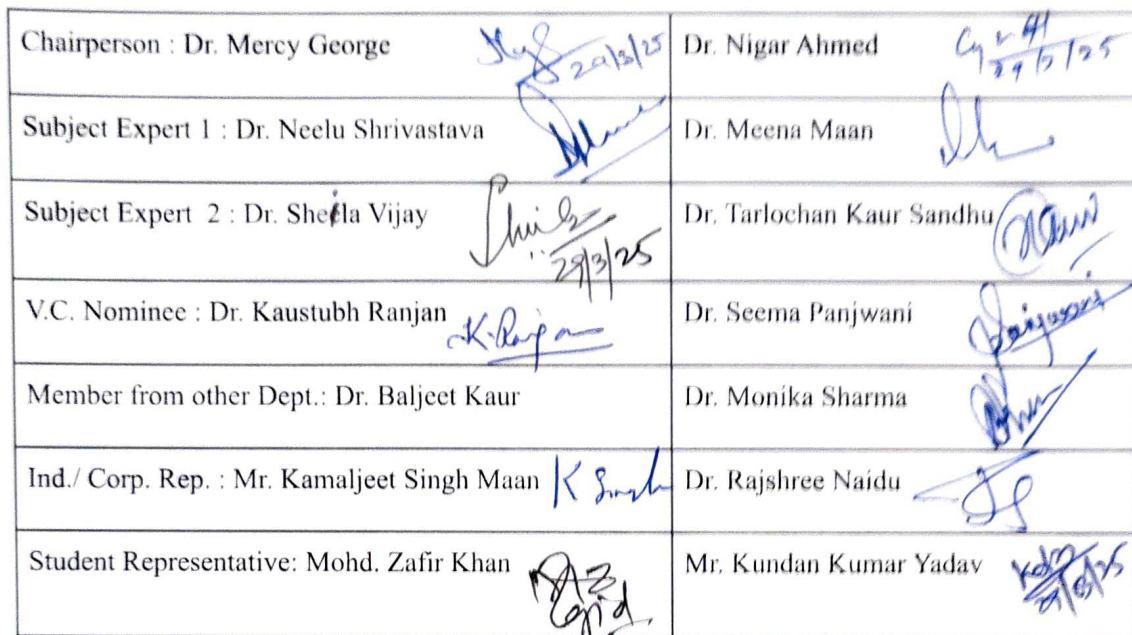 Chairperson : Dr. Mercy George 29/3/25
Dr. Nigar Ahmed
Subject Expert 1 : Dr. Neelu Shrivastava
Dr. Meena Maan
Subject Expert 2 : Dr. Sheila Vijay 29/3/25
Dr. Tarlochan Kaur Sandhu
V.C. Nominee : Dr. Kaustubh Ranjan K. Ranjan
Dr. Seema Panjwani
Member from other Dept.: Dr. Baljeet Kaur
Dr. Monika Sharma
Ind./ Corp. Rep. : Mr. Kamaljeet Singh Maan K Singh
Dr. Rajshree Naidu
Student Representative: Mohd. Zafir Khan
Mr. Kundan Kumar Yadav